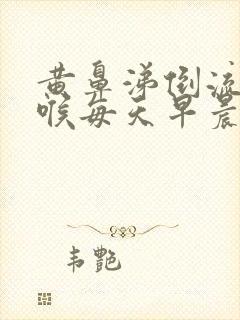 黄鼻涕倒流
喉每天早晨
韦艳